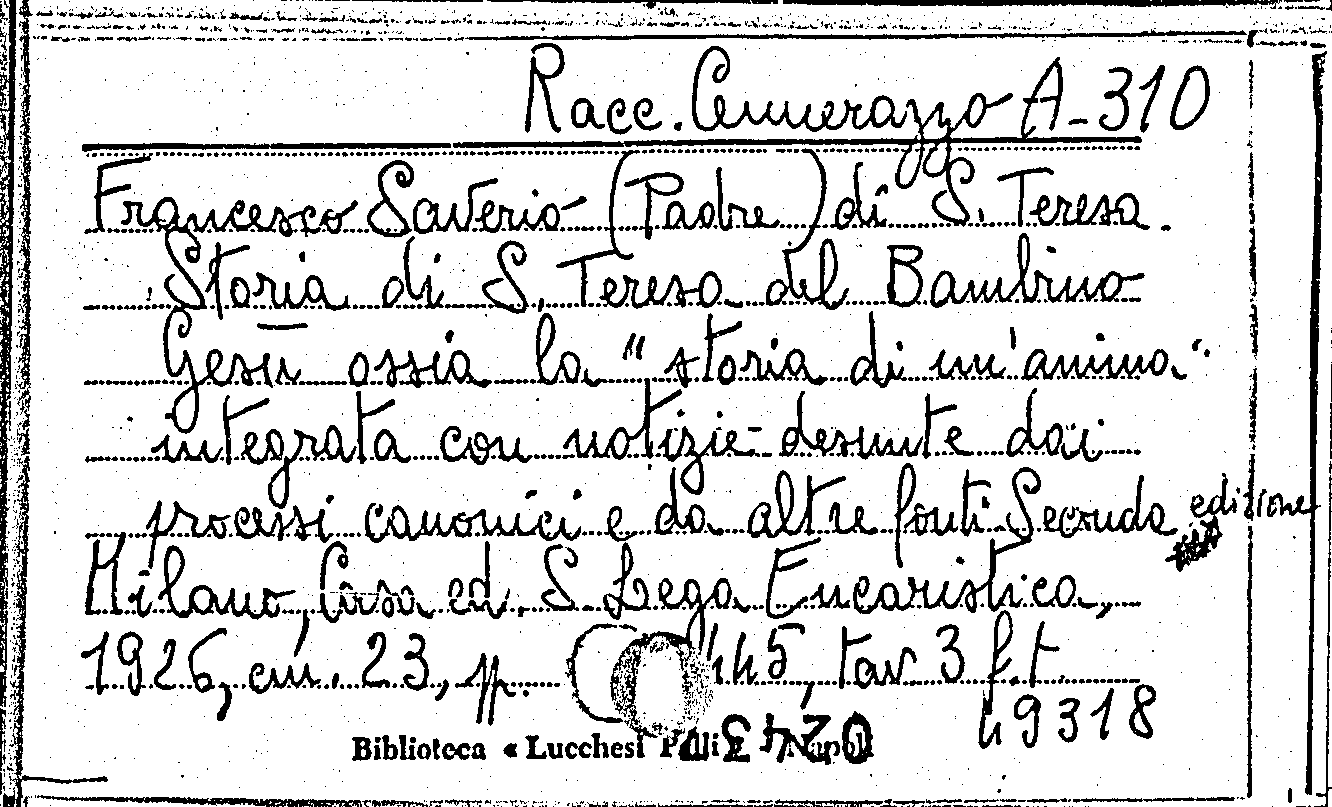 Racc. Cennerazzo A-310
Francesco Saverio (Padre) di S. Teresa.
Storia di S. Teresa del Bambino
Gesù ossia la "storia di un'anima"
integrata con notizie desunte dai
processi canonici e da altre fonti Seconda edizione
Milano, Casa ed. S. Lega Eucaristica,
1926, cm. 23, pp. 445, tav 3 f.t.
49318
Biblioteca « Lucchesi Palli » Napoli